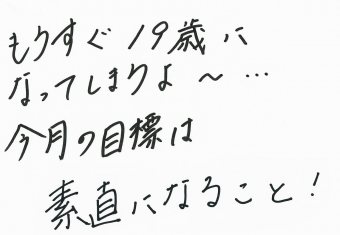 もうすぐ19歳に
なってしまうよ〜…
今月の目標は
素直になること!